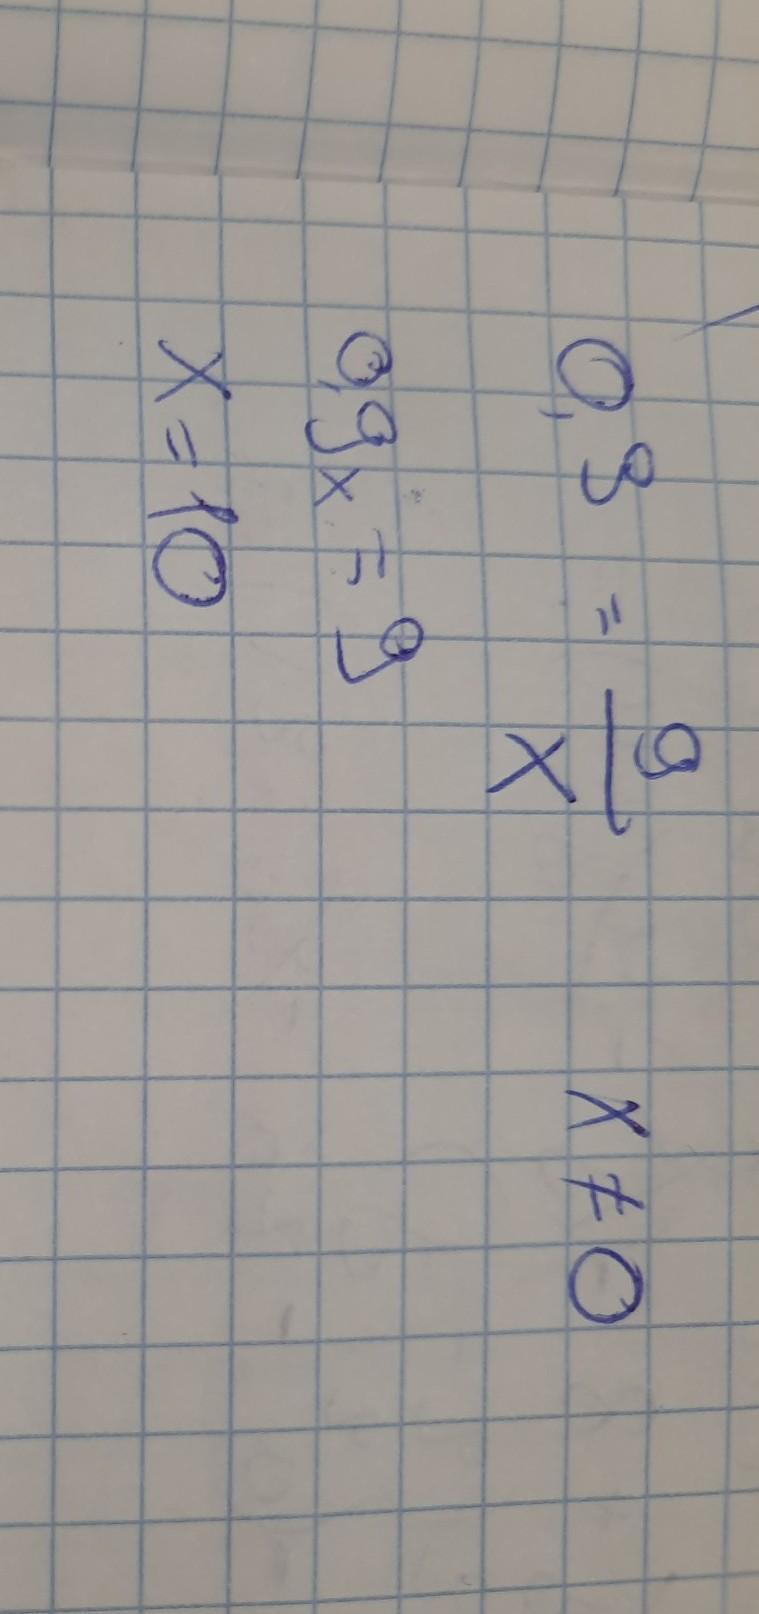 0,9 = 9/x x ≠ 0
0,9x = 9
x = 10